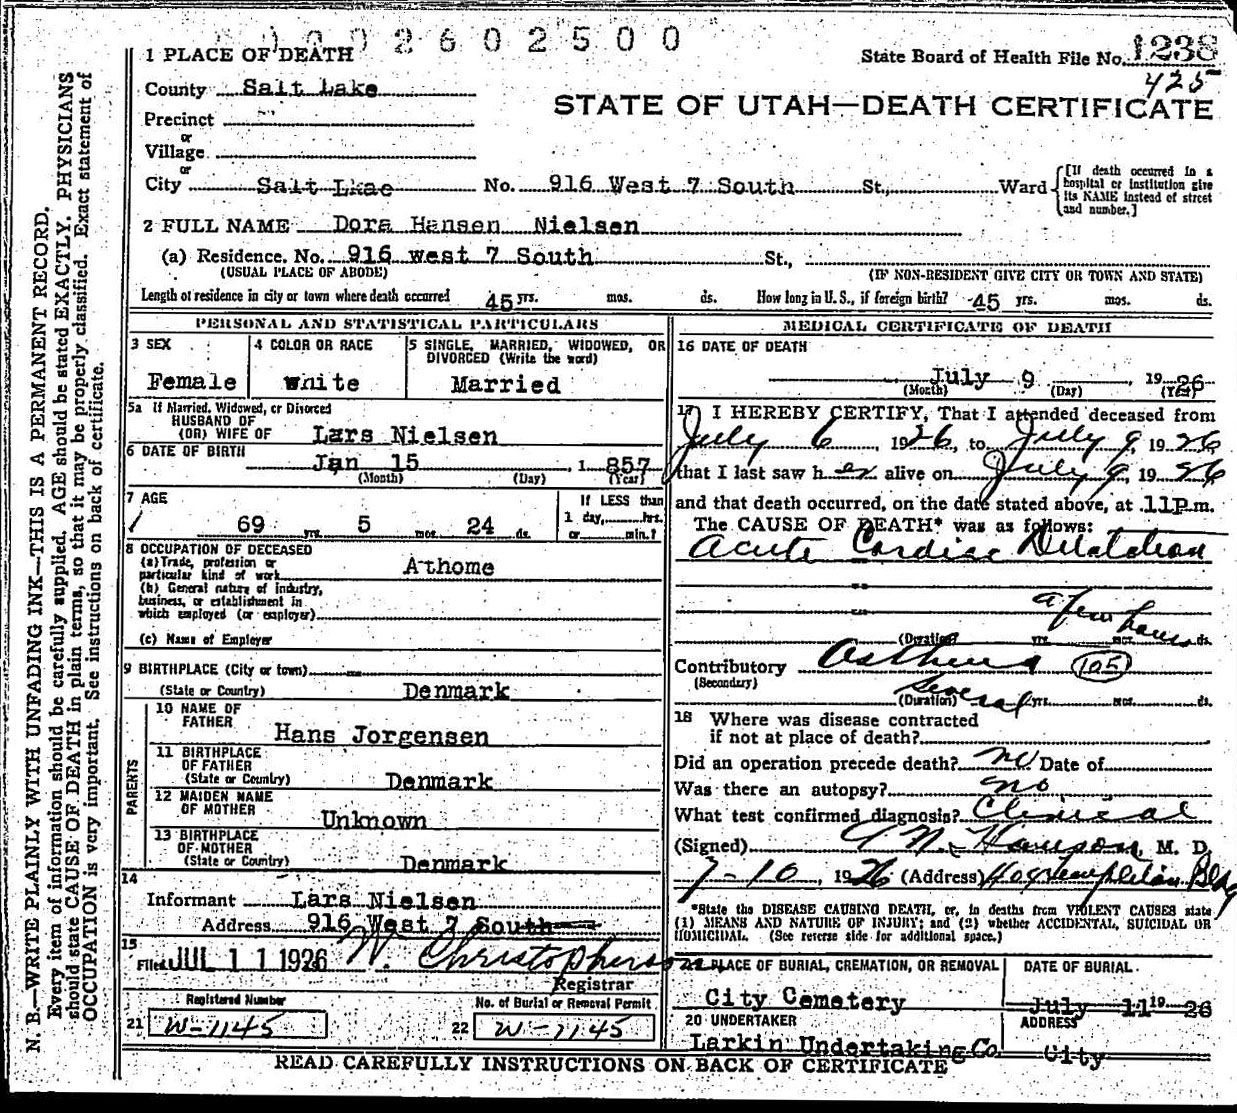 0002602500
1 PLACE OF DEATH
State Board of Health File No. 1238
425
County Salt Lake
STATE OF UTAH—DEATH CERTIFICATE
Precinct
or
Village
or
City Salt Lkae No. 916 West 7 South St., Ward
[If death occurred in a hospital or institution give its NAME instead of street and number.]
2 FULL NAME Dora Hansen Nielsen
(a) Residence. No. 916 west 7 South St.,
(USUAL PLACE OF ABODE) (IF NON-RESIDENT GIVE CITY OR TOWN AND STATE)
Length of residence in city or town where death occurred 45 yrs. mos. ds. How long in U. S., if foreign birth? 45 yrs. mos. ds.
PERSONAL AND STATISTICAL PARTICULARS
3 SEX
Female
4 COLOR OR RACE
white
5 SINGLE, MARRIED, WIDOWED, OR
DIVORCED (Write the word)
Married
5a If Married, Widowed, or Divorced
HUSBAND OF
(OR) WIFE OF Lars Nielsen
6 DATE OF BIRTH
Jan 15, 1 857
(Month) (Day) (Year)
7 AGE
69 yrs. 5 mos. 24 ds.
If LESS than
1 day, hrs.
or min.?
8 OCCUPATION OF DECEASED
(a) Trade, profession or
particular kind of work Athome
(b) General nature of industry,
business, or establishment in
which employed (or employer)
(c) Name of Employer
9 BIRTHPLACE (City or town)
(State or Country) Denmark
PARENTS
10 NAME OF
FATHER
Hans Jorgensen
11 BIRTHPLACE
OF FATHER
(State or Country) Denmark
12 MAIDEN NAME
OF MOTHER
Unknown
13 BIRTHPLACE
OF MOTHER
(State or Country) Denmark
14
Informant Lars Nielsen
Address 916 West 7 South
15
Filed JUL 11 1926 W. Christopherson
Registrar
Registered Number
21 W-1145
No. of Burial or Removal Permit
22 W-1145
MEDICAL CERTIFICATE OF DEATH
16 DATE OF DEATH
July 9, 19 26
(Month) (Day) (Year)
17 I HEREBY CERTIFY, That I attended deceased from
July 6, 1926, to July 9, 1926
that I last saw h er alive on July 9, 19 26
and that death occurred, on the date stated above, at 11P.m.
The CAUSE OF DEATH* was as follows:
Acute Cardiac Dilatation
a few hours
(Duration) yrs. mos. ds.
Contributory Asthma (105)
(Secondary)
(Duration) Several yrs. mos. ds.
18 Where was disease contracted
if not at place of death?
Did an operation precede death? no Date of
Was there an autopsy? no
What test confirmed diagnosis? Clinical
(Signed) Hanson M. D.
7-10, 1926 (Address) Templeton Bldg
*State the DISEASE CAUSING DEATH, or, in deaths from VIOLENT CAUSES state
(1) MEANS AND NATURE OF INJURY; and (2) whether ACCIDENTAL, SUICIDAL OR
HOMICIDAL. (See reverse side for additional space.)
PLACE OF BURIAL, CREMATION, OR REMOVAL
City Cemetery
DATE OF BURIAL
July 11 19 26
20 UNDERTAKER
Larkin Undertaking Co.
ADDRESS
City
READ CAREFULLY INSTRUCTIONS ON BACK OF CERTIFICATE
N. B.—WRITE PLAINLY WITH UNFADING INK—THIS IS A PERMANENT RECORD.
Every item of information should be carefully supplied. AGE should be stated EXACTLY. PHYSICIANS
should state CAUSE OF DEATH in plain terms, so that it may be properly classified. Exact statement of
OCCUPATION is very important. See instructions on back of certificate.